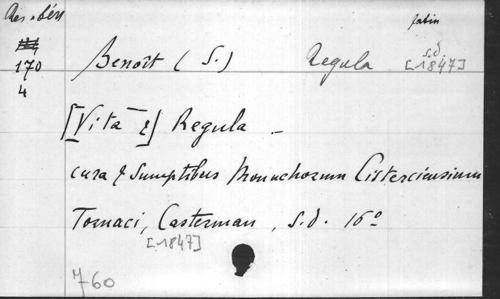 Res. bén
latin
170
4
Benoît (S.) Regula s.d. [1847]
[Vita &] Regula -
cura & sumptibus Monachorum Cisterciensium
Tornaci, Casterman, s.d. 16°
[1847]
760